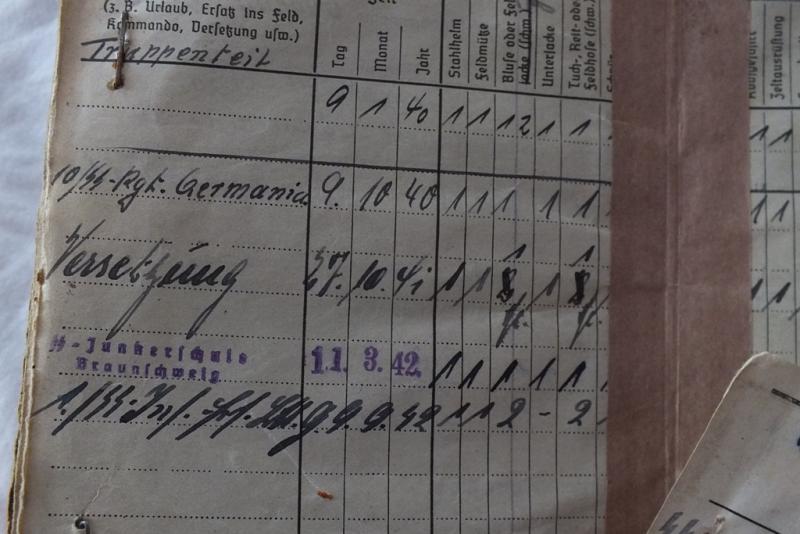 Zeit
(z. B. Urlaub, Ersatz ins Feld,
Kommando, Versetzung usw.)
Truppenteil
Tag Monat Jahr Stahlhelm Feldmütze Bluse oder Feldjacke (schw.) Unterjacke Tuch-, Reit- oder Feldhose (schw.)
Zeltausrüstung
9 1 40 1 1 1 2 1 1 1 1
10/SS-Rgt. Germania 9. 10 40 1 1 1 1 1 1 1
1 1
Versetzung 27. 10. 41 1 1 8 1 8 1 1
SS-Junkerschule
Braunschweig 11. 3. 42 1 1 1 1 1
1./SS-Inf. 9. 9. 42 1 1 2 - 2